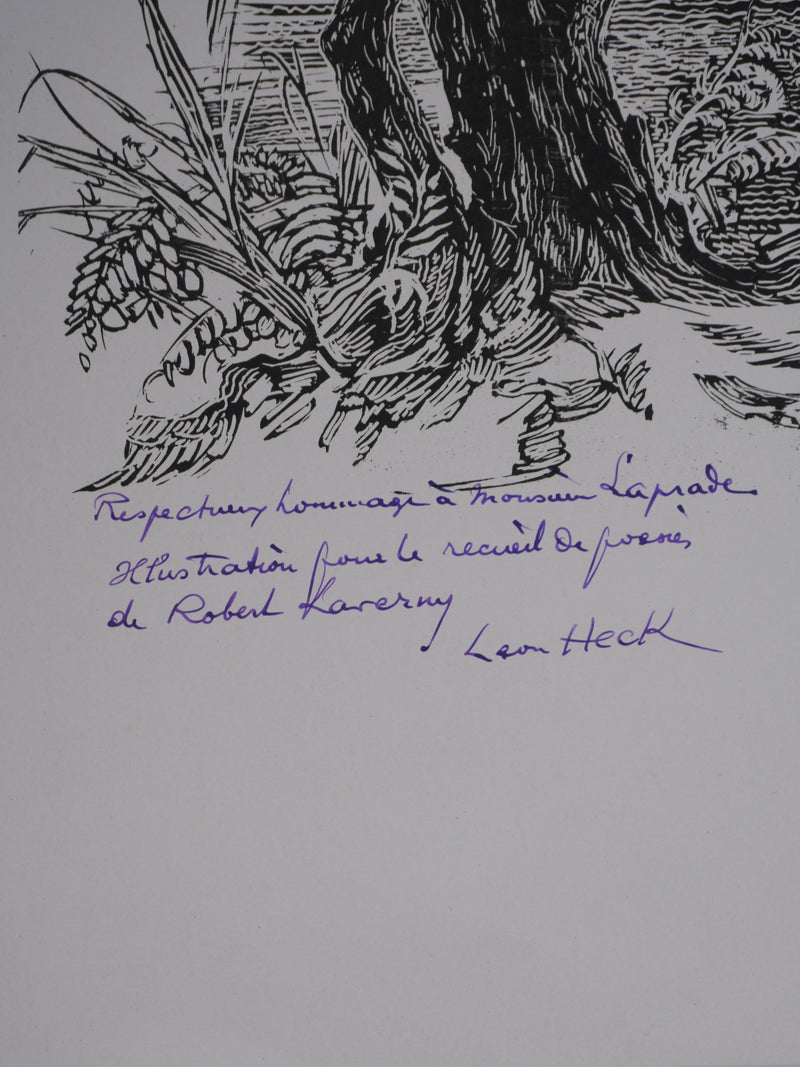 Respectueux hommage à Monsieur Laprade
Illustration pour le recueil de poésies
de Robert Laverny
Leon Heck